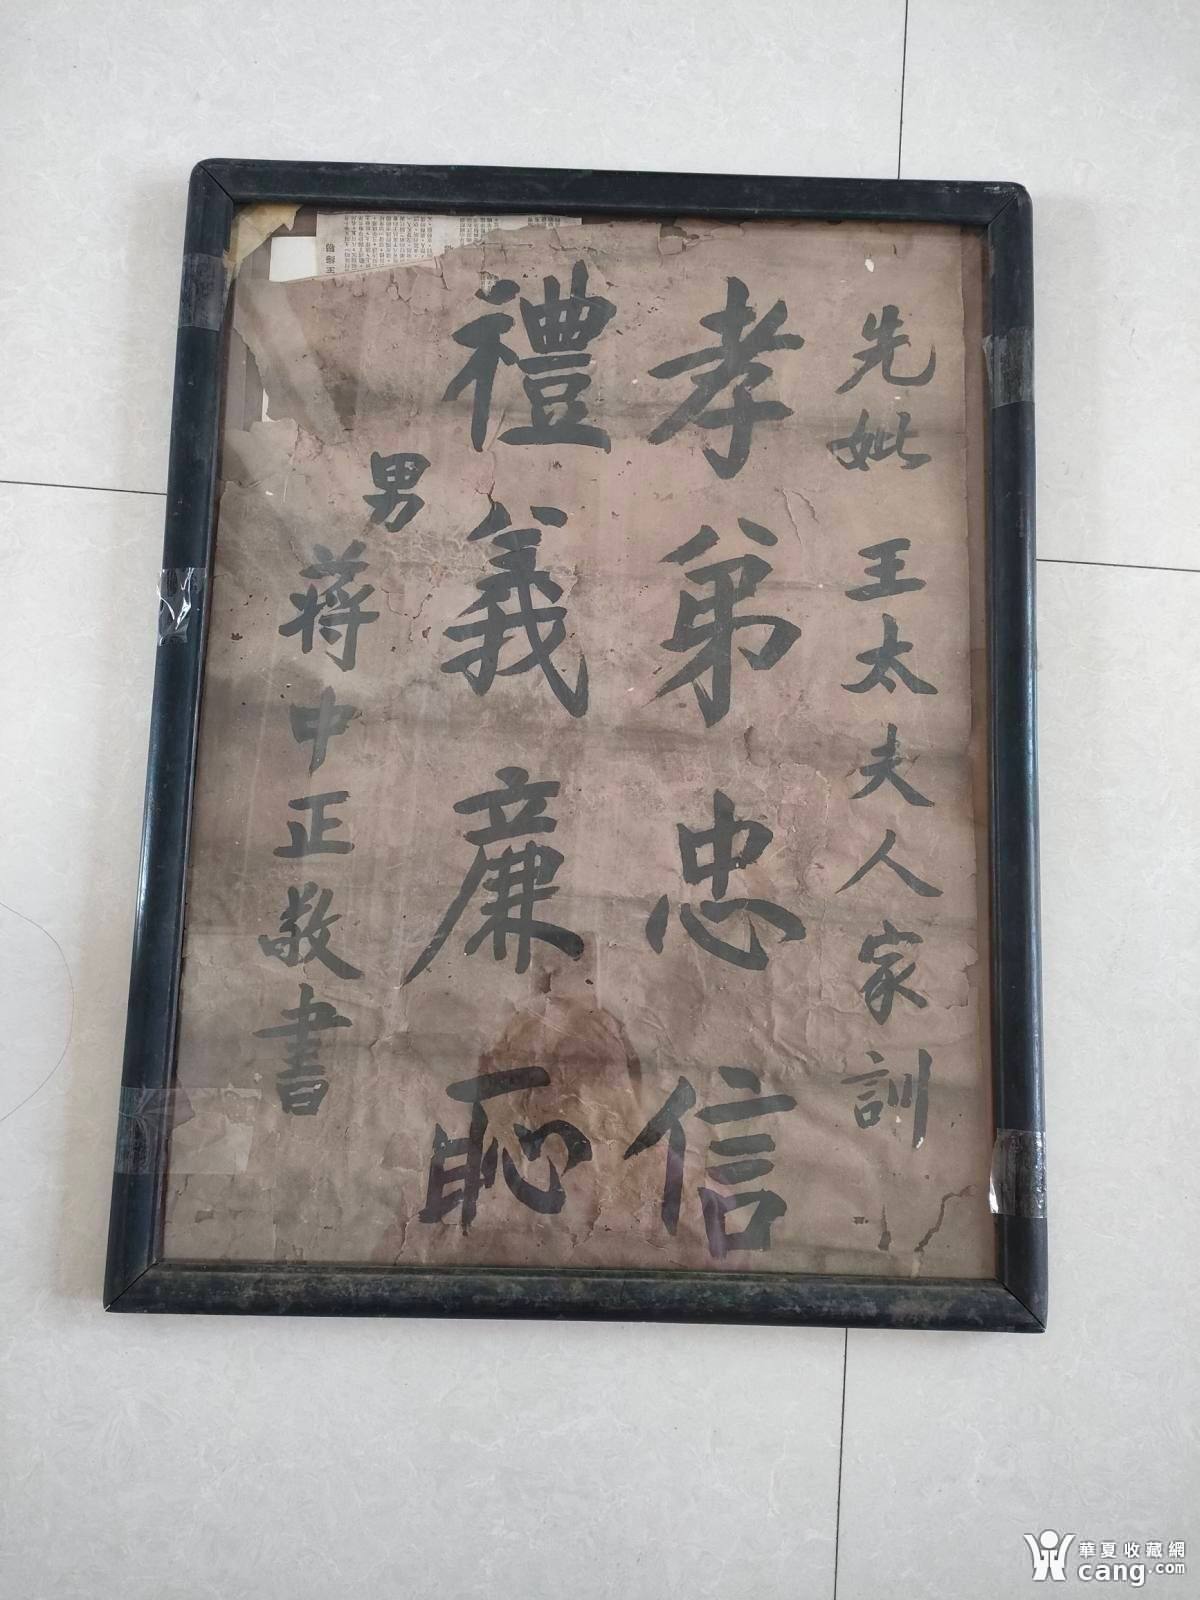 先妣王太夫人家訓
孝弟忠信
禮義廉恥
男
蔣中正敬書
華夏收藏網
cang.com